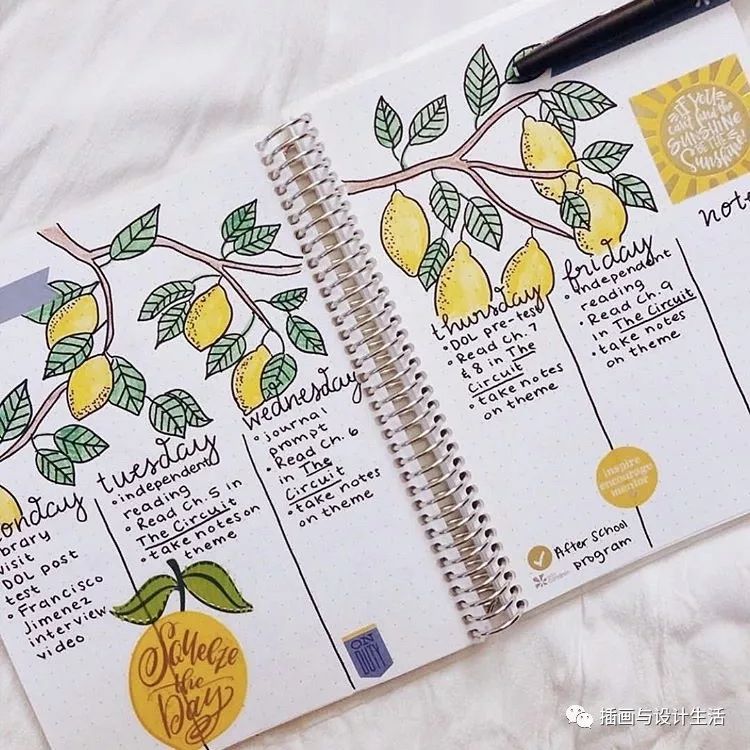 onday
brary
visit
DOL post
test
• Francisco
Jimenez
interview
video
tuesday
• independent
reading
• Read Ch. 5 in
The Circuit
• take notes on
theme
Squeeze
the
Day
wednesday
• journal
prompt
• Read Ch. 6
in The
Circuit
• take notes
on theme
ON
DUTY
thursday
• DOL pre-test
• Read Ch. 7
& 8 in The
Circuit
• take notes
on theme
After School
program
friday
• independent
reading
• Read Ch. 9
in The Circuit
• take notes
on theme
inspire
encourage
mentor
IF YOU
can't find the
SUNSHINE
BE THE
Sunshine
note
插画与设计生活